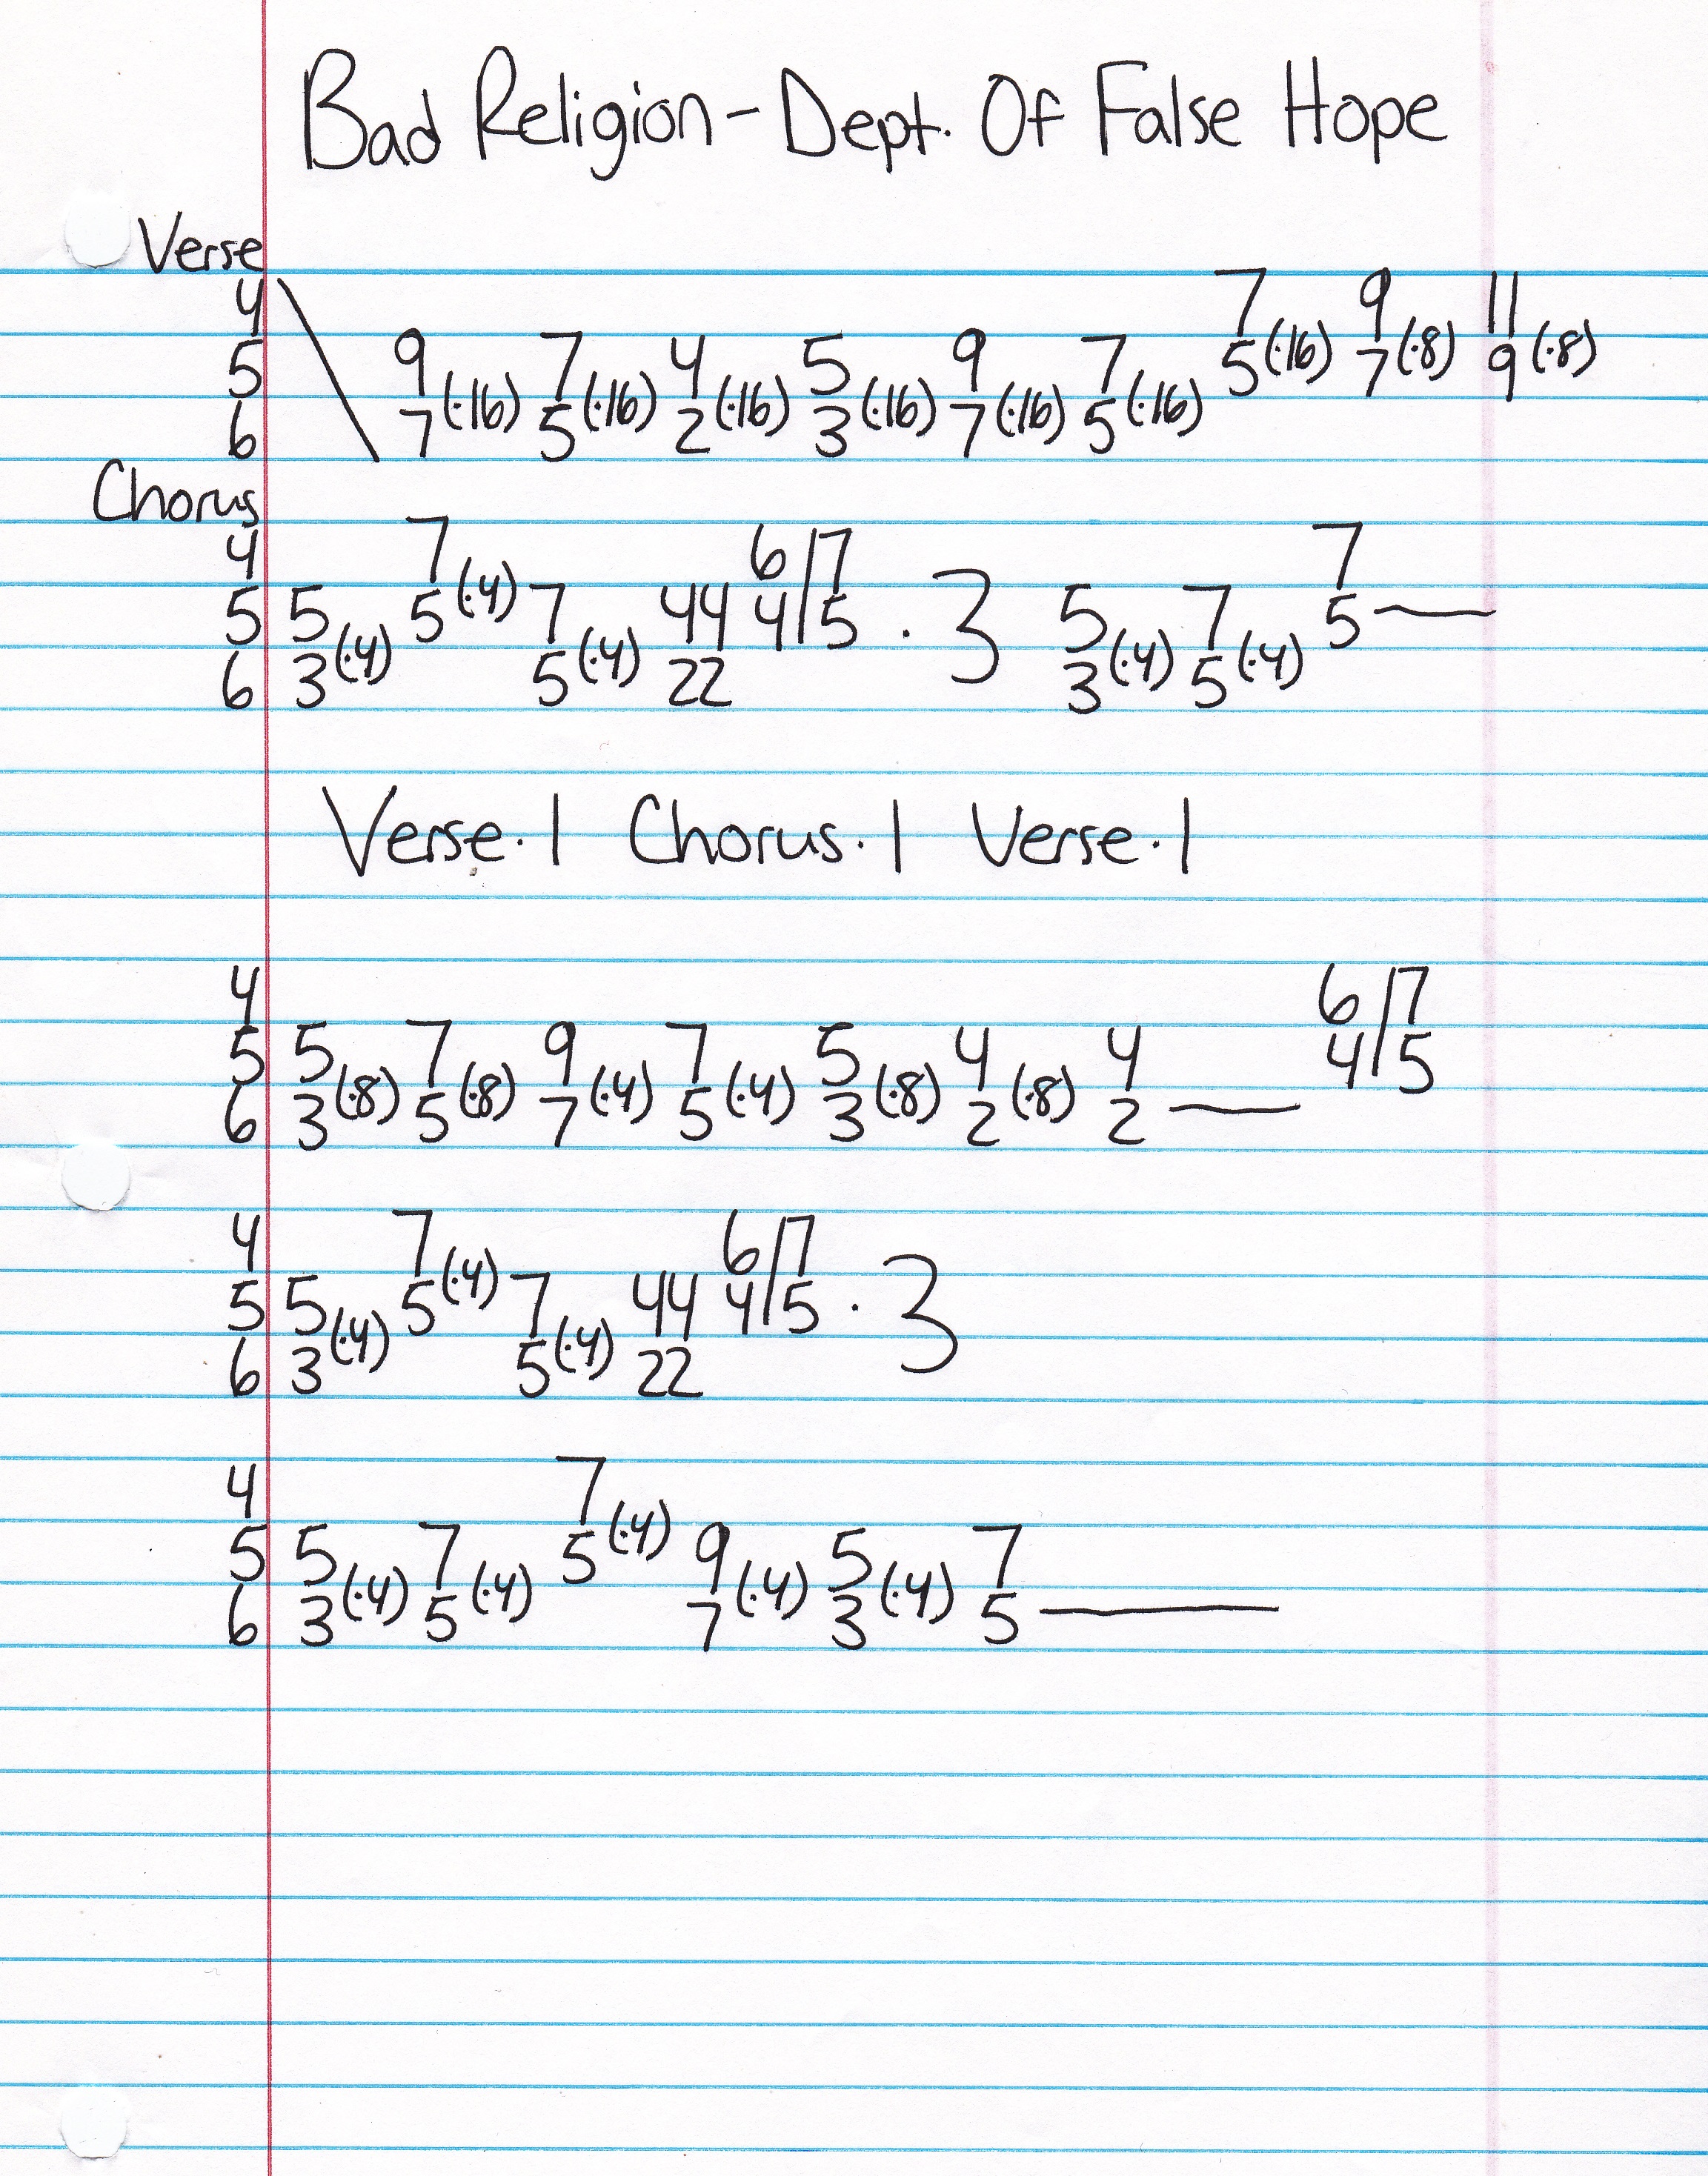 Bad Religion - Dept. Of False Hope
Verse
4 7 9 11
5 9 7 4 5 9 7 5(·16) 7(·8) 9(·8)
6 7(·16) 5(·16) 2(·16) 3(·16) 7(·16) 5(·16)
Chorus
4 7 6/7 7
5 5 5(·4) 7 44 4/5 · 3 5 7 5—
6 3(·4) 5(·4) 22 3(·4) 5(·4)
Verse·1 Chorus·1 Verse·1
4 6/7
5 5 7 9 7 5 4 4 4/5
6 3(·8) 5(·8) 7(·4) 5(·4) 3(·8) 2(·8) 2—
4 7 6/7
5 5 5(·4) 7 44 4/5 · 3
6 3(·4) 5(·4) 22
4 7
5 5 7 5(·4) 9 5 7
6 3(·4) 5(·4) 7(·4) 3(·4) 5—